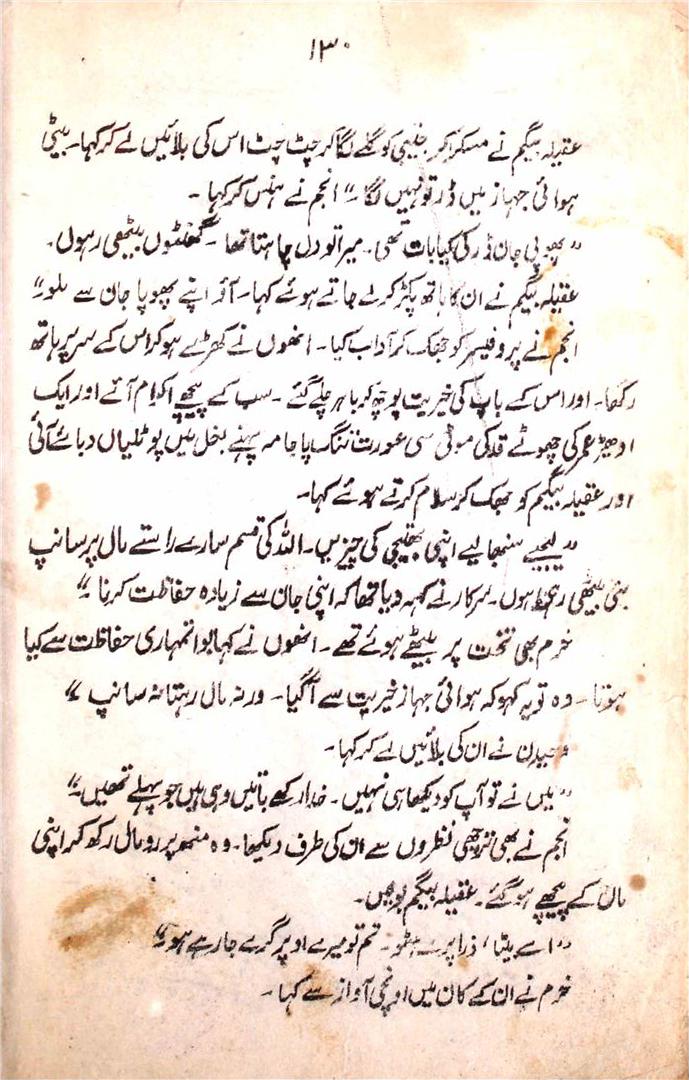 ۱۳۰
عقیلہ بیگم نے مسکرا کر بھتیجی کو گلے لگا کر چٹ چٹ اس کی بلائیں لے کر کہا۔ بیٹی
ہوائی جہاز میں ڈر تو نہیں لگا۔" انجم نے ہنس کر کہا۔
"پھوپی جان ڈر کی کیا بات تھی۔ میرا تو دل چاہتا تھا۔ گھنٹوں بیٹھی رہوں۔
عقیلہ بیگم نے ان کا ہاتھ پکڑ کر لے جاتے ہوئے کہا۔ آؤ اپنے پھوپا جان سے ملو۔"
انجم نے پروفیسر کو جھک کر آداب کیا۔ انھوں نے کھڑے ہو کر اس کے سر پر ہاتھ
رکھا۔ اور اس کے باپ کی خیریت پوچھ کر باہر چلے گئے۔ سب کے پیچھے اکرام آئے اور ایک
ادھیڑ عمر کی چھوٹے قد کی موٹی سی عورت تنگ پاجامہ پہنے بغل میں پوٹلیاں دبائے آئی
اور عقیلہ بیگم کو جھک کر سلام کرتے ہوئے کہا۔
"لیجیے سنبھالیے اپنی بھتیجی کی چیزیں۔ اللہ کی قسم سارے راستے مال پر سانپ
بنی بیٹھی رہی ہوں۔ سرکار نے کہہ دیا تھا کہ اپنی جان سے زیادہ حفاظت کرنا۔"
خرم بھی تخت پر بیٹھے ہوئے تھے۔ انھوں نے کہا بوا تمہاری حفاظت سے کیا
ہوتا۔ وہ تو یہ کہو کہ ہوائی جہاز خیریت سے آ گیا۔ ورنہ مال رہتا نہ سانپ۔"
حمیدن نے ان کی بلائیں لے کر کہا۔
"میں نے تو آپ کو دیکھا ہی نہیں۔ خدا رکھے باتیں وہی ہیں جو پہلے تھیں۔"
انجم نے بھی ترچھی نظروں سے ان کی طرف دیکھا۔ وہ منھ پر رومال رکھ کر اپنی
ماں کے پیچھے ہو گئے۔ عقیلہ بیگم بولیں۔
"اے بیٹا، ذرا پرے ہٹو۔ تم تو میرے اوپر گرے جا رہے ہو۔"
خرم نے ان کے کان میں اونچی آواز سے کہا۔